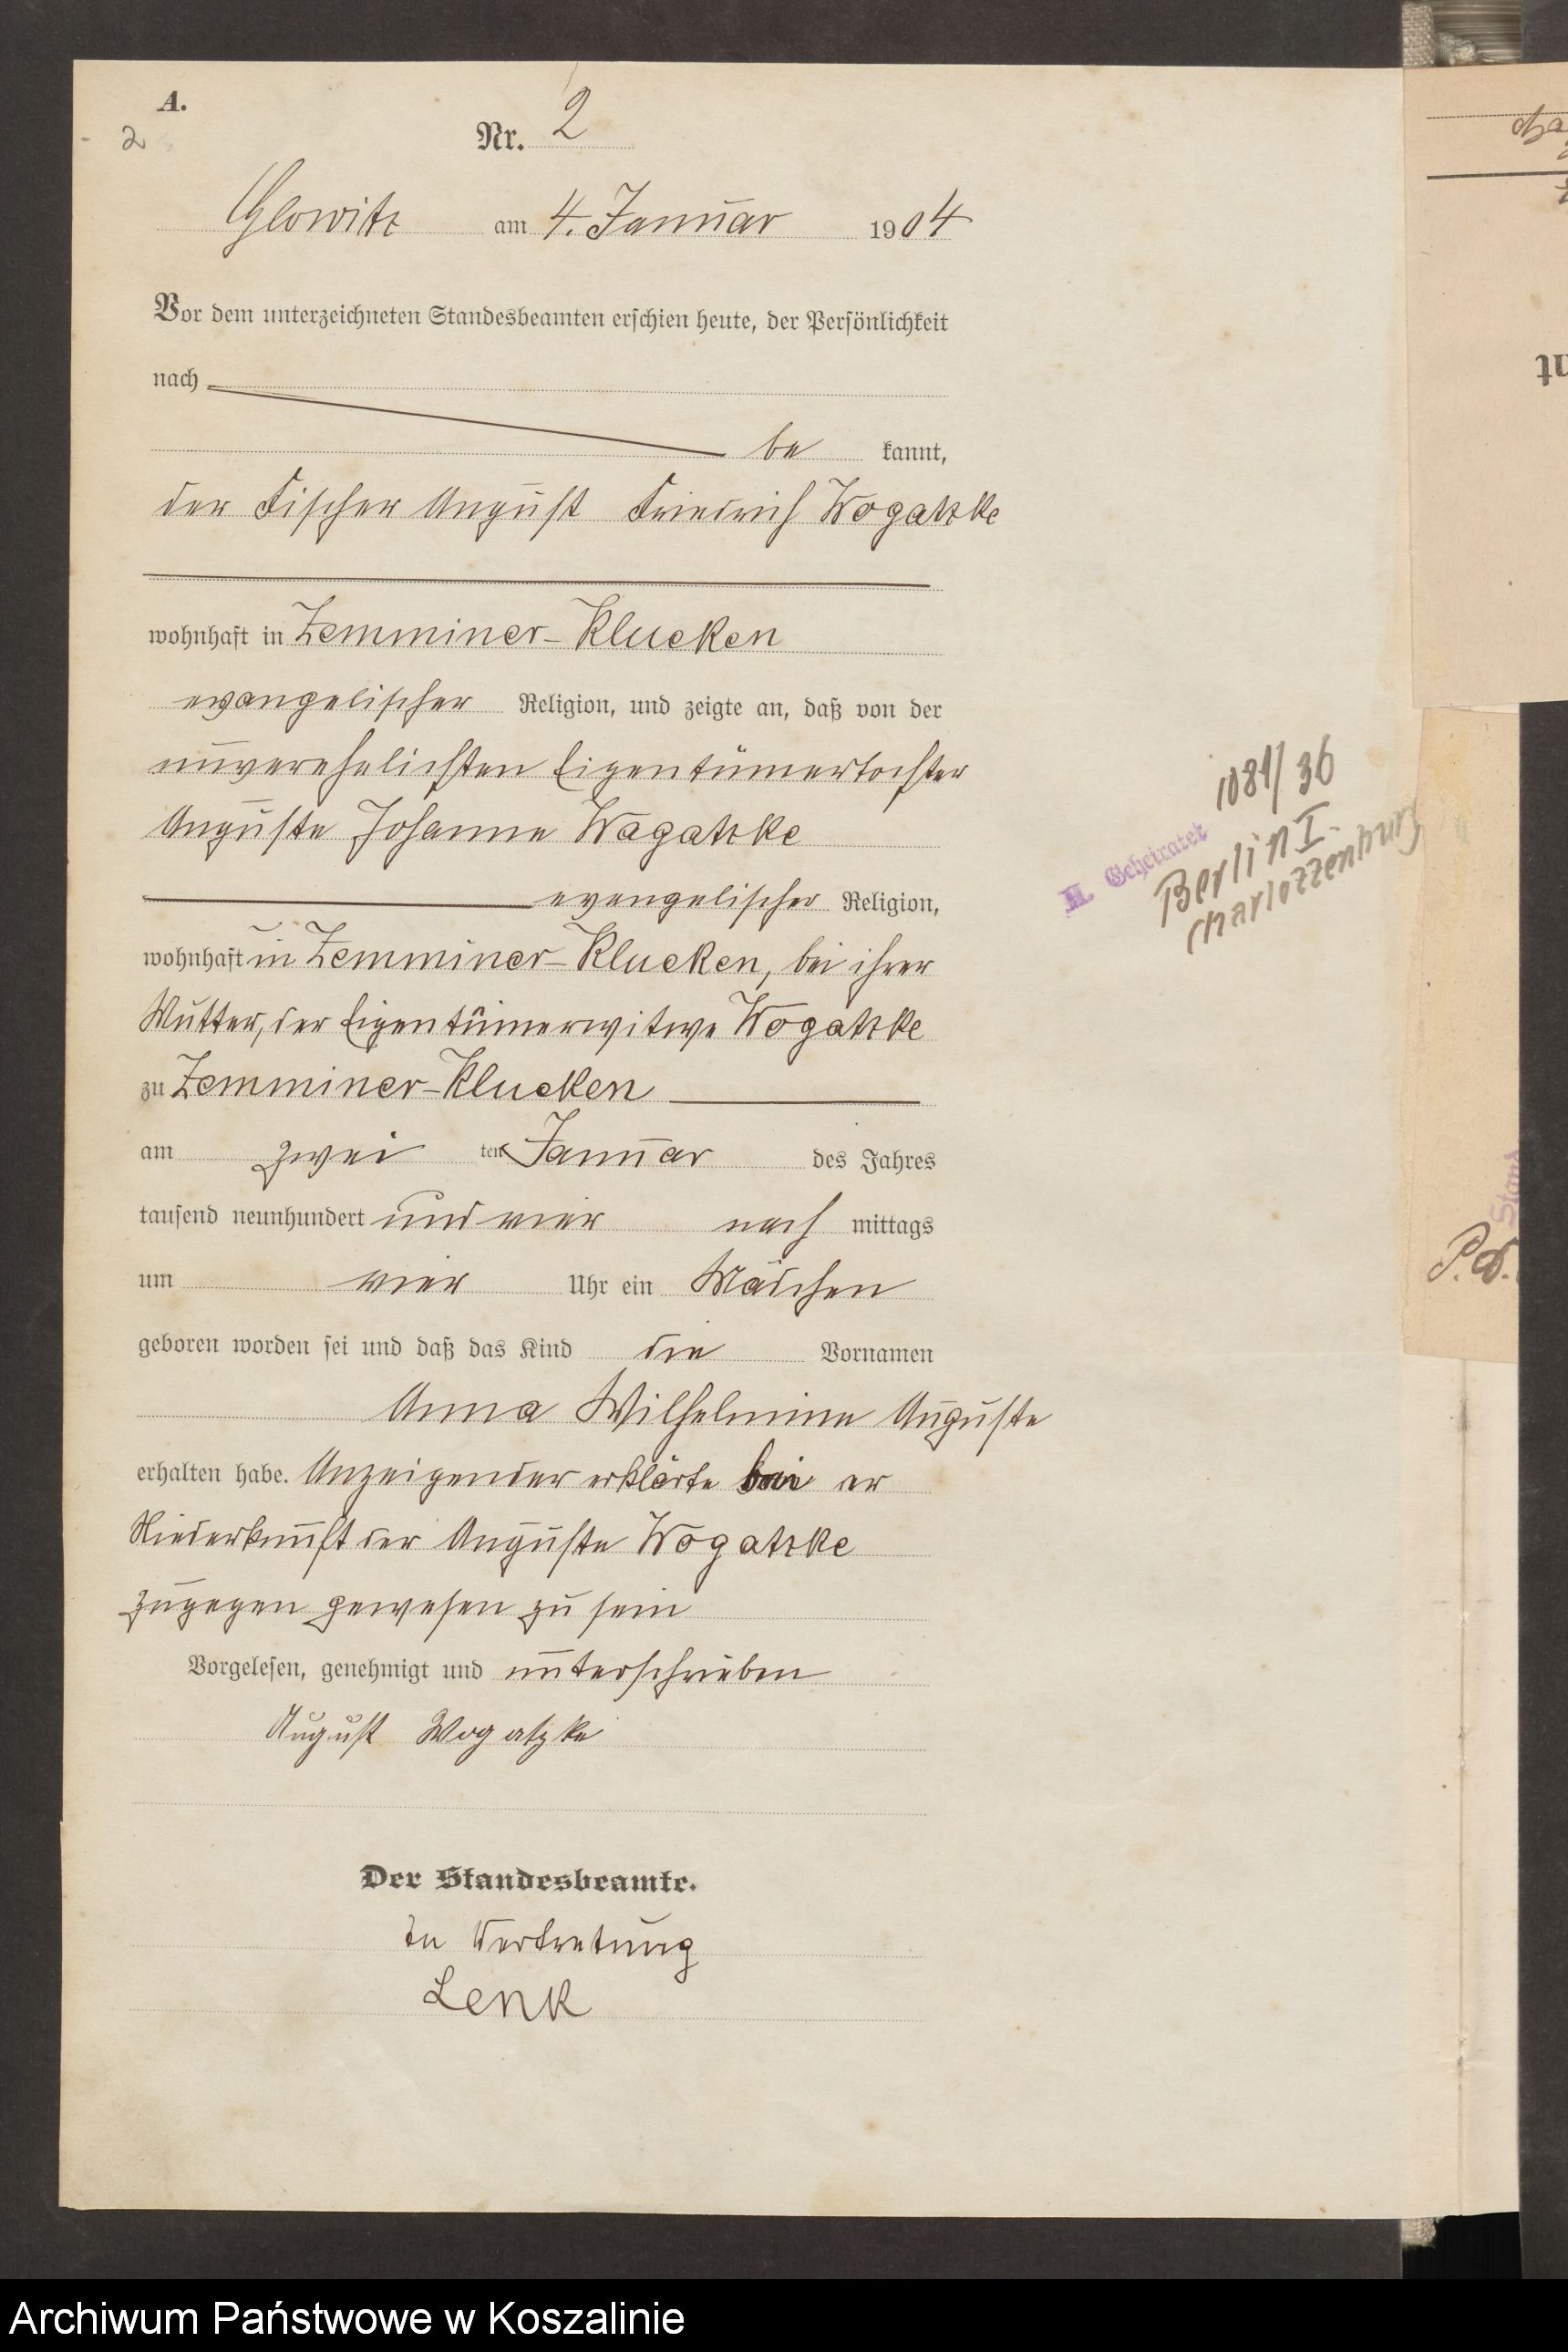 A.
2
Nr. 2
Glowitz am 4. Januar 1904
Vor dem unterzeichneten Standesbeamten erschien heute, der Persönlichkeit
nach
be kannt,
der Fischer August Friedrich Wogatzke
wohnhaft in Zemminer-Klucken
evangelischer Religion, und zeigte an, daß von der
unverehelichten Eigentümertochter
Auguste Johanne Wagatzke
evangelischer Religion,
wohnhaft in Zemminer-Klucken, bei ihrer
Mutter, der Eigentümerwitwe Wogatzke
zu Zemminer-Klucken
am zwei ten Januar des Jahres
tausend neunhundert und vier nach mittags
um vier Uhr ein Mädchen
geboren worden sei und daß das Kind die Vornamen
Anna Wilhelmine Auguste
erhalten habe. Anzeigender erklärte bei er
Niederkunft der Auguste Wogatzke
zugegen gewesen zu sein
Vorgelesen, genehmigt und unterschrieben
August Wogatzke
Der Standesbeamte.
In Vertretung
Lenk
1081/36
H. Geheiratet
Berlin I.
Charlottenburg
Stand
P.d.
Archiwum Państwowe w Koszalinie